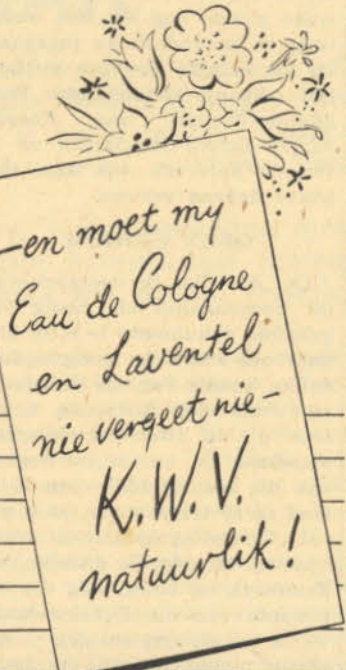 —en moet my
Eau de Cologne
en Laventel
nie vergeet nie—
K.W.V.
natuurlik!